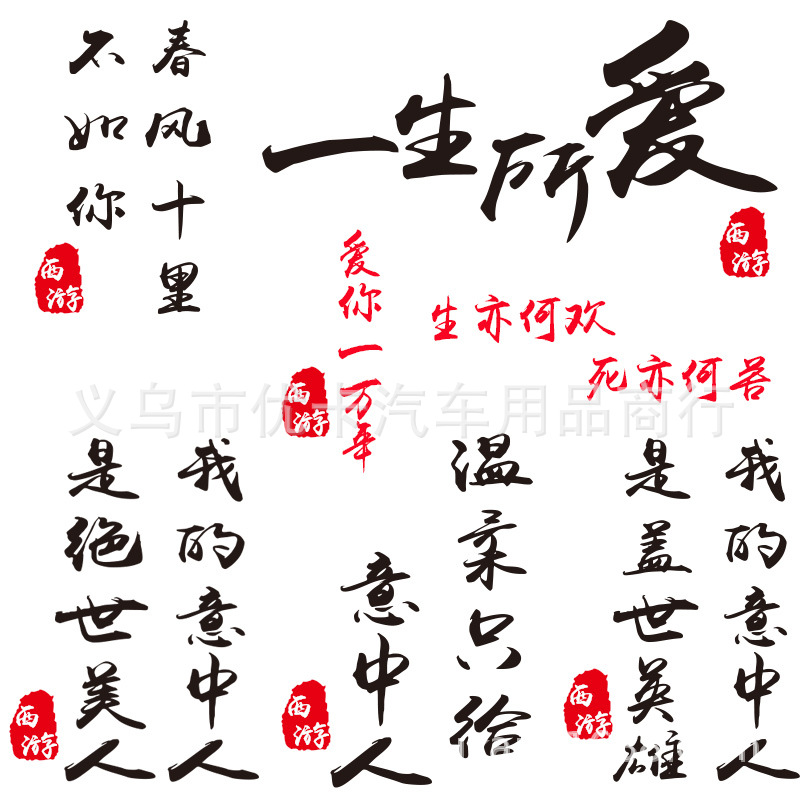 春风十里
不如你
西游
一生所爱
西游
爱你一万年
西游
生亦何欢
死亦何苦
义乌市优卡汽车用品商行
我的意中人
是绝世美人
西游
温柔只给
意中人
西游
我的意中人
是盖世英雄
西游